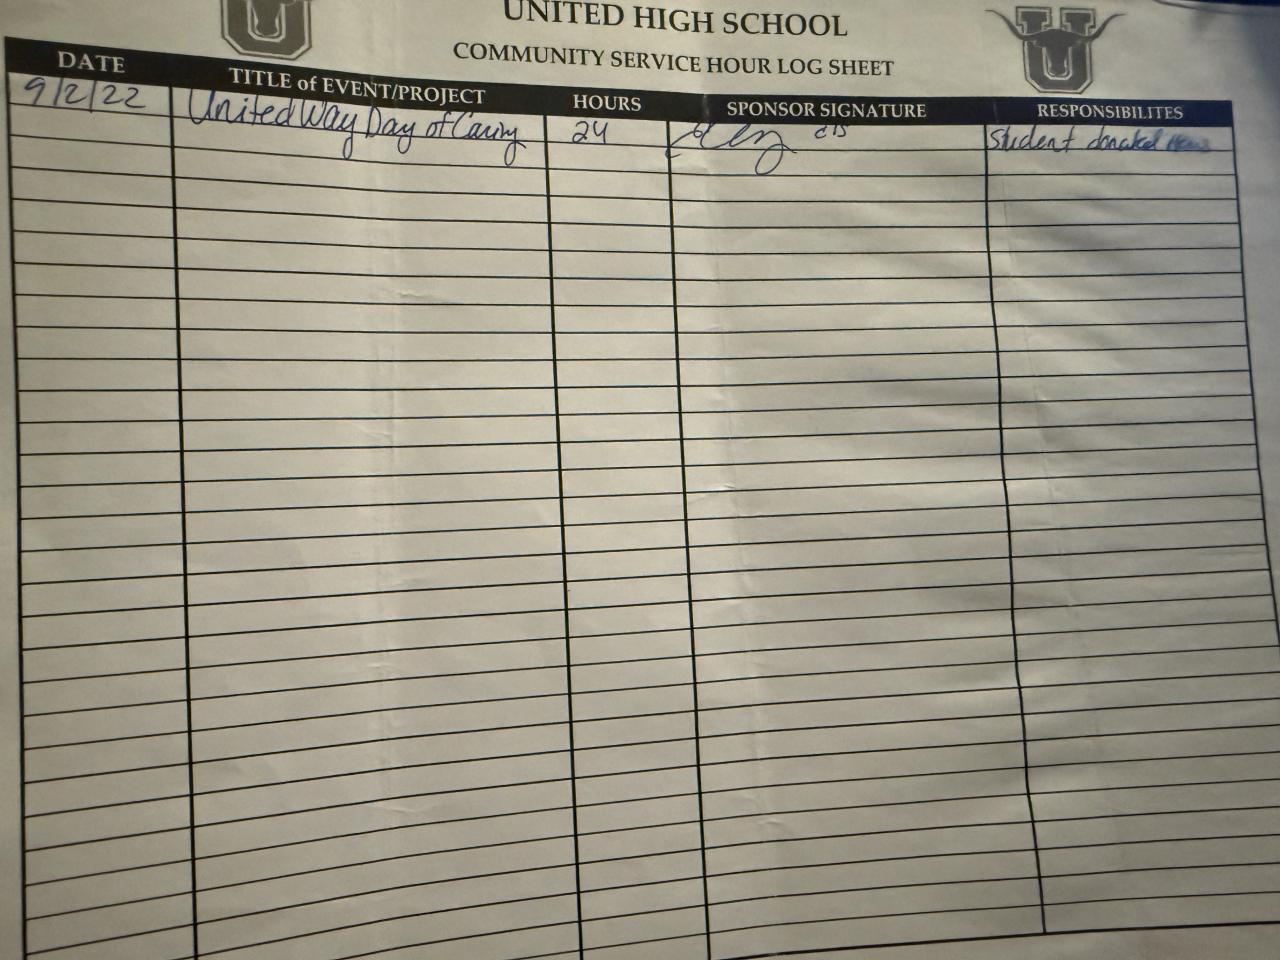 UNITED HIGH SCHOOL
COMMUNITY SERVICE HOUR LOG SHEET
DATE TITLE of EVENT/PROJECT HOURS SPONSOR SIGNATURE RESPONSIBILITES
9/2/22 United Way Day of Caring 24 Student donated